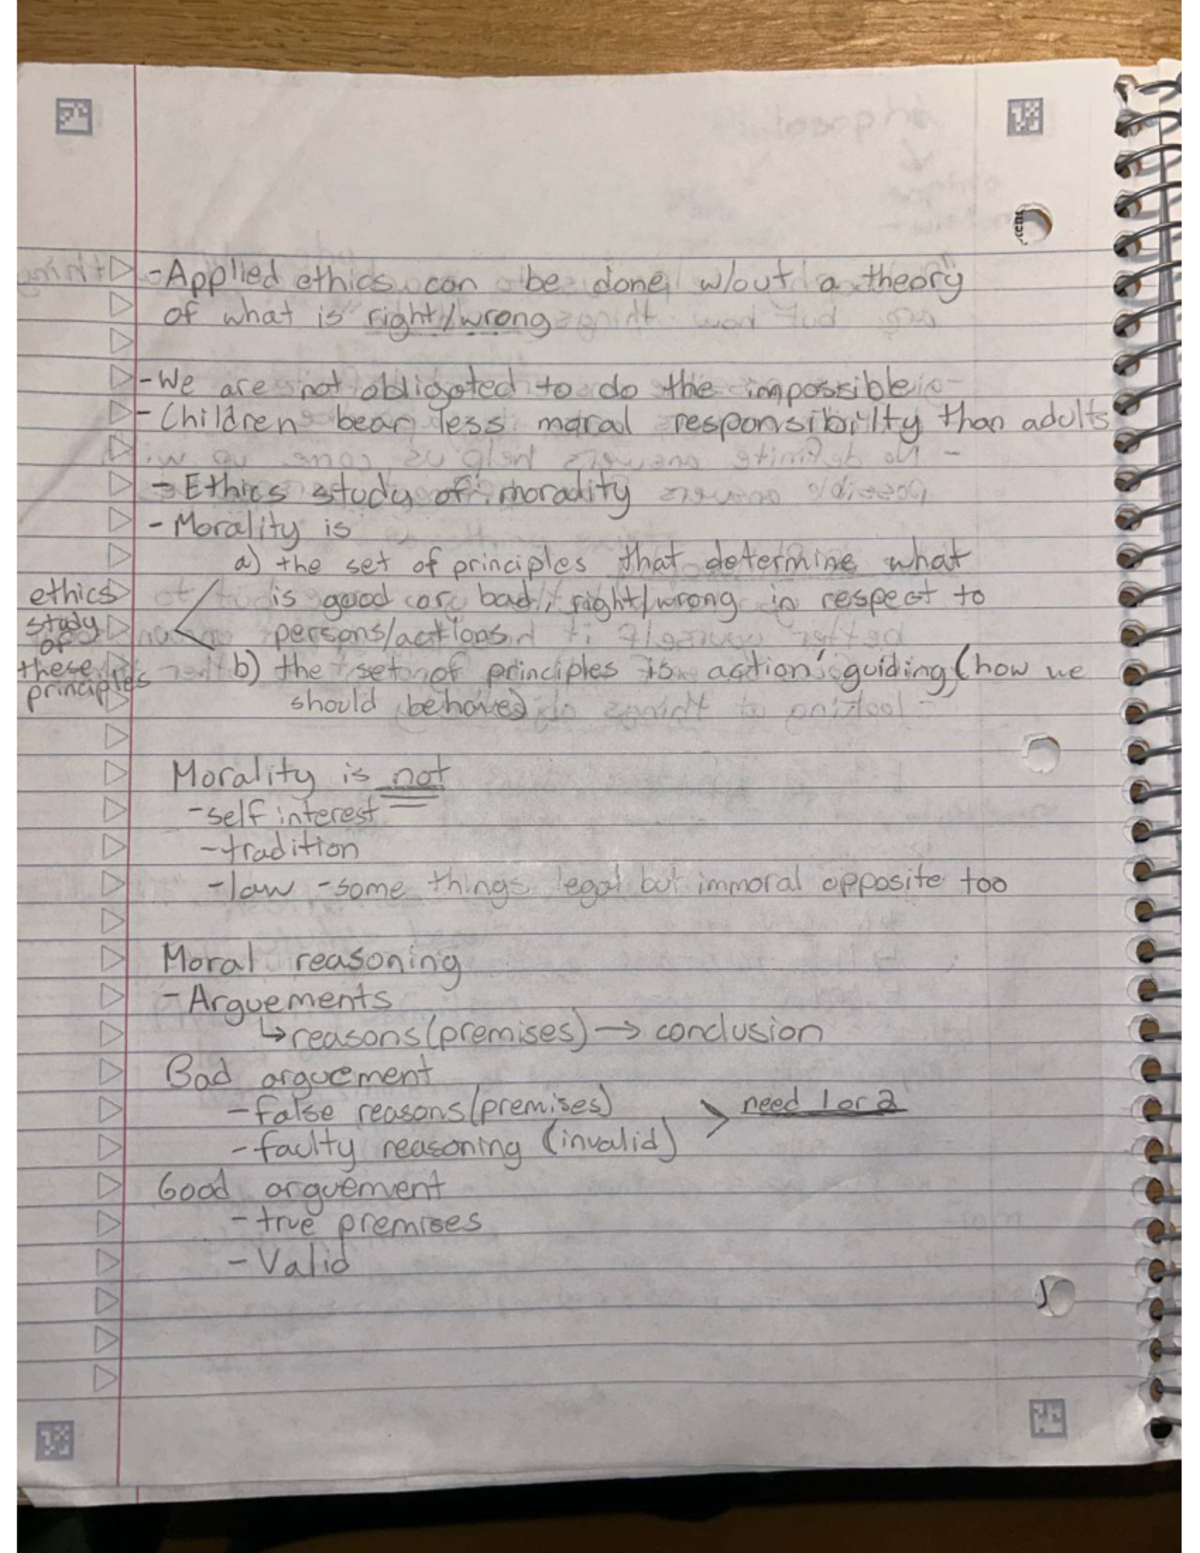 -Applied ethics can be done w/out a theory
of what is right/wrong
-We are not obligated to do the impossible
-Children bear less moral responsibility than adults
-Ethics study of morality
-Morality is
a) the set of principles that determine what
is good or bad, right/wrong in respect to
persons/actions
b) the set of principles is action guiding (how we
should behave)
ethics
study
of
these
principles
Morality is not
-self interest
-tradition
-law -some things legal but immoral opposite too
Moral reasoning
-Arguements
↳reasons(premises)→conclusion
Bad arguement
-false reasons(premises)
-faulty reasoning (invalid)
> need 1 or 2
Good arguement
-true premises
-Valid